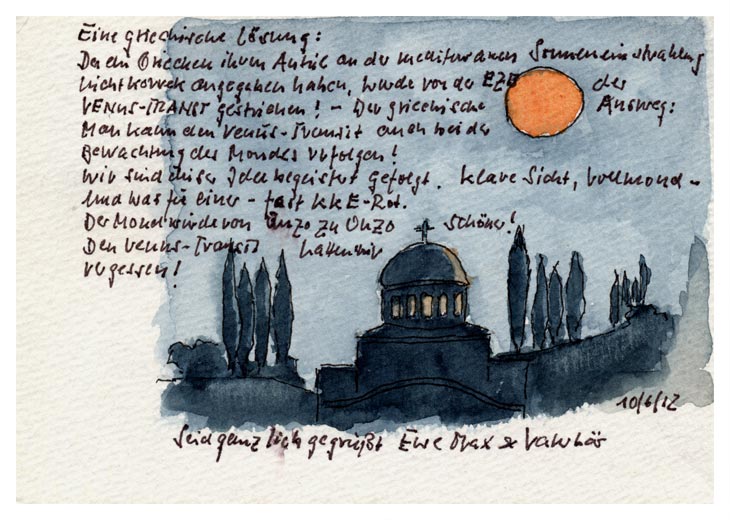 Eine griechische Lösung:
Da die Griechen ihren Anteil an der mediterranen Sonneneinstrahlung
nicht korrekt angegeben haben, wurde von der EZB der
VENUS-TRANSIT gestrichen! – Der griechische Ausweg:
Man kann den Venus-Transit auch bei der
Beobachtung des Mondes verfolgen!
Wir sind dieser Idee begeistert gefolgt. Klare Sicht, Vollmond –
Und was für einer – fast KKE-Rot.
Der Mond wurde von Ouzo zu Ouzo schöner!
Den Venus-Transit hatten wir
vergessen!
10/6/12
Seid ganz lich gegrüßt Eure Max &